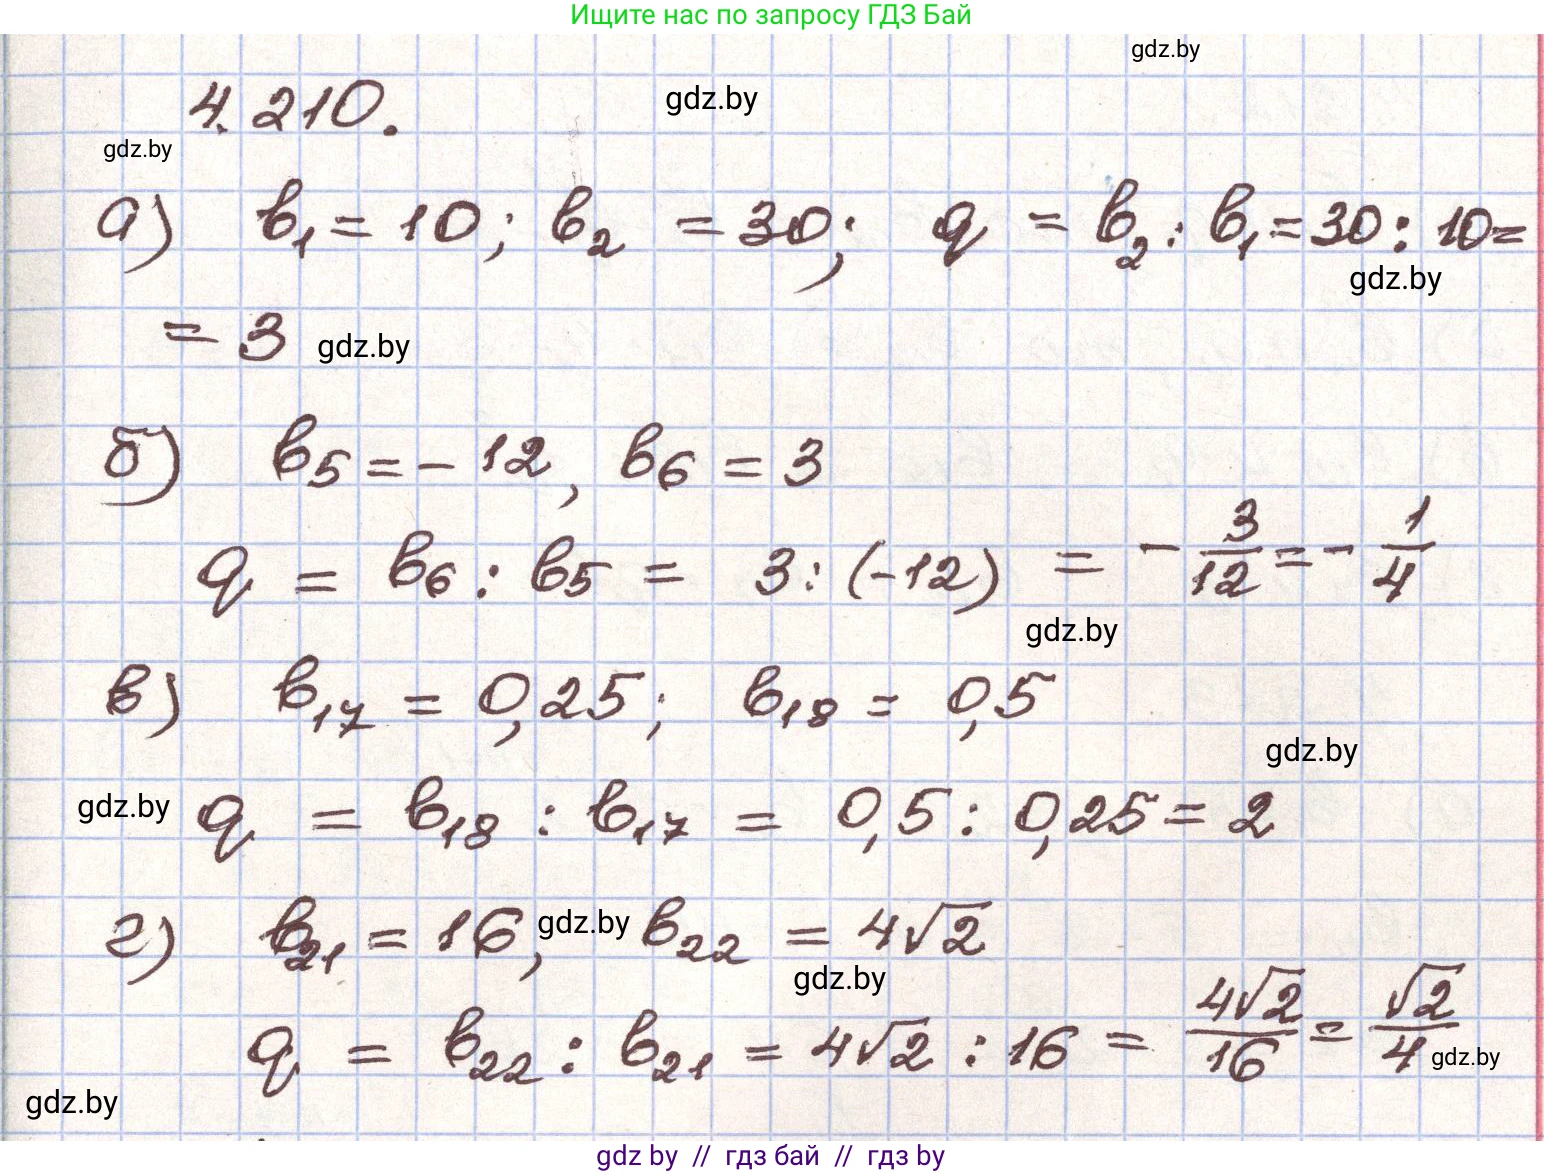 Ищите нас по запросу ГДЗ Бай
gdz.by
4.210.
gdz.by
gdz.by
а) b₁ = 10; b₂ = 30; q = b₂ : b₁ = 30 : 10 =
gdz.by
= 3
gdz.by
б) b₅ = - 12, b₆ = 3
q = b₆ : b₅ = 3 : (-12) = - 3/12 = - 1/4
gdz.by
в) b₁₇ = 0,25; b₁₈ = 0,5
gdz.by
gdz.by
q = b₁₈ : b₁₇ = 0,5 : 0,25 = 2
г) b₂₁ = 16, b₂₂ = 4√2
gdz.by
gdz.by
q = b₂₂ : b₂₁ = 4√2 : 16 = 4√2/16 = √2/4
gdz.by
gdz.by
gdz by // гдз бай // gdz by